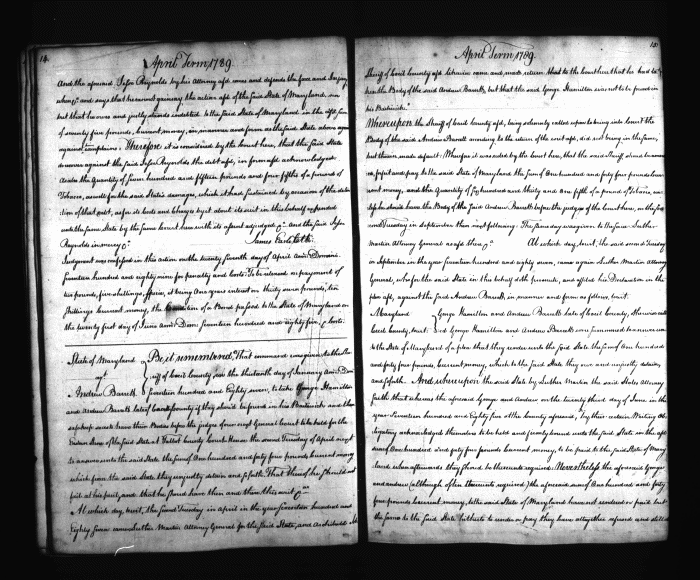 14.
April Term 1789
And the aforesaid Jesse Reynolds by his Attorney afsd. comes and defends the force and Injury
when &c. and says that he cannot gainsay the action afsd. of the said State of Maryland, nor
but that he owes and justly stands indebted to the said State of Maryland in the afsd. sum
of seventy five pounds, current money, in manner and form as the said State above
against complains. Therefore it is considered by the Court here, that the said State
recover against the said Jesse Reynolds the debt afsd. in form afsd. acknowledged
And also the Quantity of seven hundred and fifteen pounds and four fifths of a pound of
Tobacco, as well for the said State's damages, which it had sustained by occasion of the deten
tion of that debt, as for its costs and charges by it about its suit in this behalf expended
unto the same State by the same Court here with its assent adjudged &c. And the said Jesse
Reynolds in mercy &c.
James Earle Clk.
Judgement was confessed in this action on the twenty seventh day of April Anno Domini
seventeen hundred and eighty nine for penalty and costs. To be released on payment of
ten pounds, five shillings, specie, it being One years interest on thirty seven pounds, ten
shillings current money, the Condition of a Bond passed to the State of Maryland on
the twenty first day of June Anno Dom: seventeen hundred and eighty five, & costs.
State of Maryland
agt
Andrew Barrett
Be it remembered, That command was given to the Sher
iff of Cecil County, on the thirteenth day of January Anno Dom
seventeen hundred and Eighty seven, to take George Hamilton
and Andrew Barrett late of Cecil County if they should be found in his Bailiwick and them
safe keep so as to have their Bodies before the Judges of our next General Court to be held for the
Eastern Shore of the said State, at Talbot County Court House the second Tuesday of April next
to answer unto the said State the sum of One hundred and forty four pounds current money
which from the said State they unjustly detain and so forth. That thereof he should not
fail at his peril, and that he should have then and there this writ &c.
At which day, to wit, the second Tuesday in April in the year Seventeen hundred and
Eighty seven came Luther Martin Attorney General for the said State, and Archibald
15.
April Term 1789.
Sheriff of Cecil County afsd. likewise came and made return that to the Court here that he had ta
ken the Body of the said Andrew Barrett, but that the said George Hamilton was not to be found in
his Bailiwick.
Whereupon the Sheriff of Cecil County afsd. being solemnly called upon to bring into Court the
Body of the said Andrew Barrett according to the return of the writ afsd. did not bring in the same,
but therein made default. Therefore it was ruled by the Court here, that the said Sheriff should
forfeit and pay to the said State of Maryland the sum of One hundred and forty four pounds cur
rent money, and the Quantity of Six hundred and thirty and One fifth of a pound of Tobacco, un
less he should have the Body of the said Andrew Barrett before the Judges of the Court here, on the sec
ond Tuesday in September then next following. The same day was given to the said Luther
Martin Attorney General as afsd. then &c. At which day, to wit, the said second Tuesday
in September in the year seventeen hundred and eighty seven, came again Luther Martin Attorney
General, who for the said State in this behalf doth prosecute, and filed his Declaration in the
plea afsd. against the said Andrew Barrett, in manner and form as follows, to wit.
Maryland
Cecil County, to wit.
George Hamilton and Andrew Barrett late of Cecil County, otherwise called
George Hamilton and Andrew Barrett were summoned to answer unto
the State of Maryland of a plea that they render unto the said State the sum of One hundred
and forty four pounds, current money, which to the said State they owe and unjustly detain,
and so forth. And whereupon the said State by Luther Martin the said States Attorney
saith that whereas the aforesaid George and Andrew on the twenty third day of June in the
year Seventeen hundred and Eighty five at the County aforesaid, by their certain Writing Ob
ligatory acknowledged themselves to be held and firmly bound unto the said State in the afsd.
sum of One hundred and forty four pounds current money, to be paid to the said State of Mary
land when afterwards they should be thereunto required. Nevertheless the aforesaid George
and Andrew (although often thereunto required) the aforesaid sum of One hundred and forty
four pounds current money, to the said State of Maryland have not rendered or paid but
the same to the said State hitherto to render or pay they have altogether refused and still do